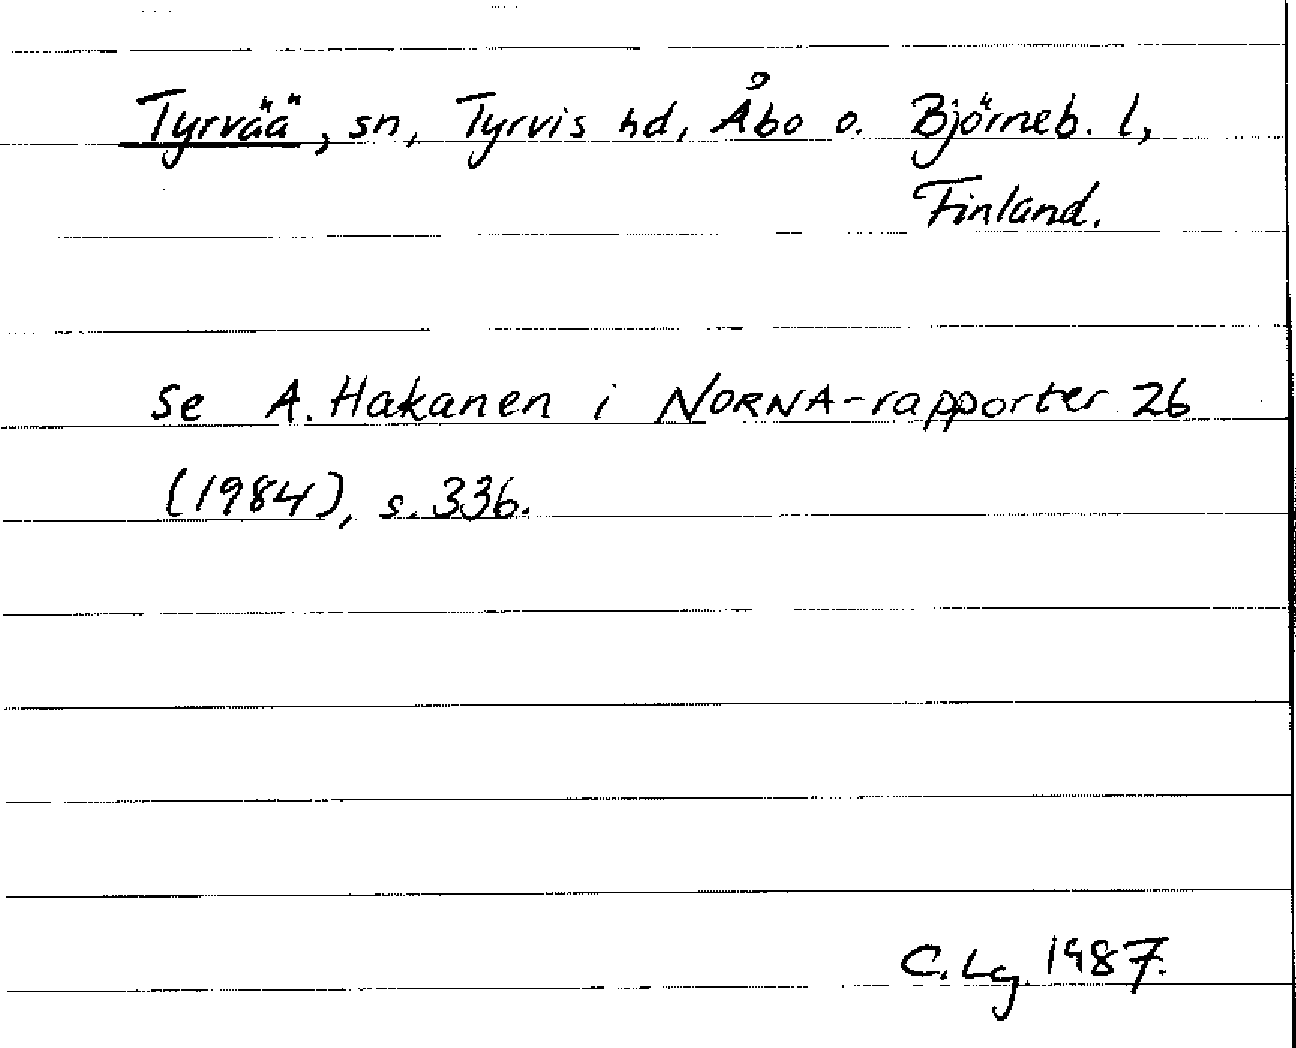 Tyrvää, sn, Tyrvis hd, Åbo o. Björneb. l,
Finland.
Se A. Hakanen i NORNA-rapporter 26
(1984), s. 336.
C. Lg. 1987.